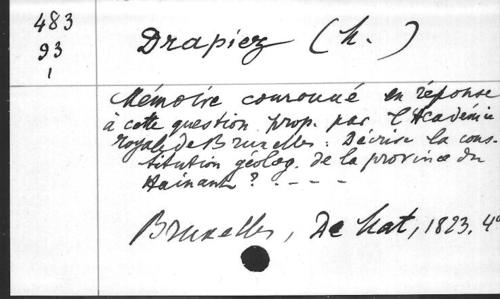 483
93
1
Drapiez (h.)
Mémoire couronné en réponse
à cette question prop. par l'Académie
royale de Bruxelles : Décrire la cons-
titution géolog. de la province du
Hainaut ? . - - -
Bruxelles, De Mat, 1823. 4°